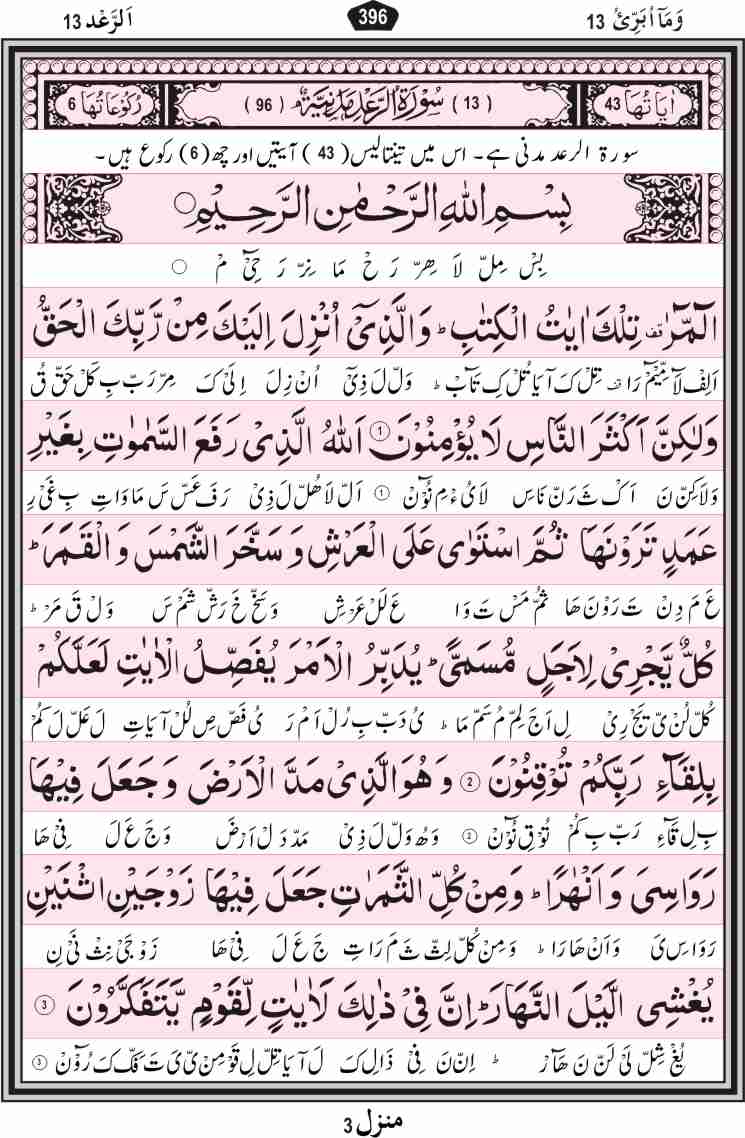 وَمَآ اُبَرِّئُ 13 396 اَلرَّعْد 13
اٰيَاتُهَا 43 (13) سُوْرَةُ الرَّعْدِ مَدَنِيَّةٌ (96) رُكُوْعَاتُهَا 6
سورۃ الرعد مدنی ہے۔ اس میں تینتالیس (43) آیتیں اور چھ (6) رکوع ہیں۔
بِسْمِ اللّٰهِ الرَّحْمٰنِ الرَّحِيْمِ ○
بِسْ مِلّ لَا هِرّ رَ حْ مَا نِرّ رَ حِیْٓ مْ ○
الٓمّٓرٰ ۚ تِلْكَ اٰيٰتُ الْكِتٰبِ ؕ وَالَّذِيْۤ اُنْزِلَ اِلَيْكَ مِنْ رَّبِّكَ الْحَقُّ
اَلِفْ لَآمّ مِّیْٓمّ رَا تِلْ كَ آ يَا تُلْ كِ تَابْ ؕ وَلّ لَ ذِیْٓ اُنْ زِلَ اِلَیْ كَ مِرّ رَبّ بِ كَلْ حَقّ قُ
وَلٰكِنَّ اَكْثَرَ النَّاسِ لَا يُؤْمِنُوْنَ ① اَللّٰهُ الَّذِيْ رَفَعَ السَّمٰوٰتِ بِغَيْرِ
وَلَا كِنّ نَ اَكْ ثَ رَنّ نَاسِ لَا یُ ءْ مِ نُوْٓنْ ① اَلّ لَا هُلّ لَ ذِیْ رَفَ عَسّ سَ مَا وَاتِ بِ غَیْ رِ
عَمَدٍ تَرَوْنَهَا ثُمَّ اسْتَوٰى عَلَى الْعَرْشِ وَسَخَّرَ الشَّمْسَ وَالْقَمَرَ ؕ
عَ مَ دِنْ تَ رَوْنَ هَا ثُمّ مَسْ تَ وَا عَ لَلْ عَرْشِ وَسَخّ خَ رَشّ شَمْ سَ وَلْ قَ مَرْ ؕ
كُلٌّ يَّجْرِيْ لِاَجَلٍ مُّسَمًّى ؕ يُدَبِّرُ الْاَمْرَ يُفَصِّلُ الْاٰيٰتِ لَعَلَّكُمْ
كُلّ لُنْ یّ یَجْ رِیْ لِ اَجَ لِمّ مُ سَمّ مَا ؕ یُ دَبّ بِ رُلْ اَمْ رَ یُ فَصّ صِ لُلْ آ یَاتِ لَ عَلّ لَ كُمْ
بِلِقَآءِ رَبِّكُمْ تُوْقِنُوْنَ ② وَهُوَ الَّذِيْ مَدَّ الْاَرْضَ وَجَعَلَ فِيْهَا
بِ لِ قَآءِ رَبّ بِ كُمْ تُوْقِ نُوْٓنْ ② وَهُ وَلّ لَ ذِیْ مَدّ دَ لْ اَرْضَ وَجَ عَ لَ فِیْ هَا
رَوَاسِيَ وَاَنْهٰرًا ؕ وَمِنْ كُلِّ الثَّمَرٰتِ جَعَلَ فِيْهَا زَوْجَيْنِ اثْنَيْنِ
رَوَا سِ یَ وَاَنْ هَارَا ؕ وَمِنْ كُلّ لِثّ ثَ مَ رَاتِ جَ عَ لَ فِیْ هَا زَوْ جَیْ نِثْ نَیْ نِ
يُغْشِي الَّيْلَ النَّهَارَ ؕ اِنَّ فِيْ ذٰلِكَ لَاٰيٰتٍ لِّقَوْمٍ يَّتَفَكَّرُوْنَ ③
یُغْ شِلّ لَیْ لَنّ نَ هَآرْ ؕ اِنّ نَ فِیْ ذَالِ كَ لَ آ یَا تِلّ لِ قَوْمِنْ یّ یَ تَ فَكّ كَ رُوْٓنْ ③
منزل 3